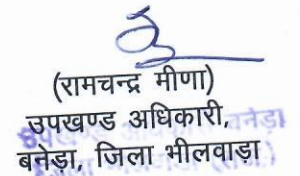 (रामचन्द्र मीणा)
उपखण्ड अधिकारी,
बनेड़ा, जिला भीलवाड़ा